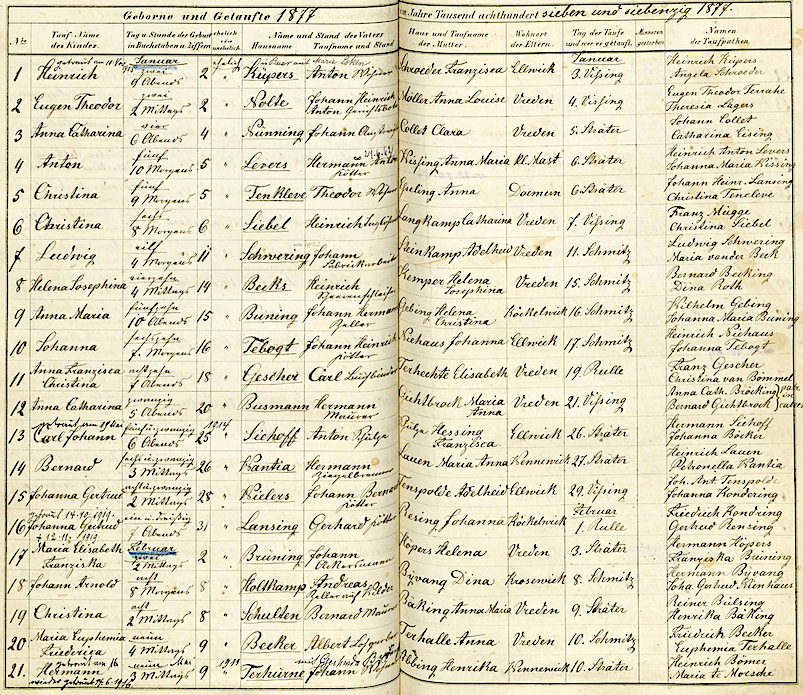 Geborne und Getaufte 1877
im Jahre Tausend achthundert sieben und siebenzig 1877.
Nro. Tauf-Name des Kindes. Tag u. Stunde der Geburt in Buchstaben u. Ziffern ehelich oder unehelich Name und Stand des Vaters Hausname Taufname und Stand Haus und Taufname der Mutter. Wohnort der Eltern. Tag der Taufe und wer es getauft. Namen der Taufpathen.
Januar Januar
1 Heinrich zwei 9 Abends 2 ehelich Küpers Anton Schroeder Franzisca Ellwick 3. Vissing Heinrich Küpers Angela Schroeder
2 Eugen Theodor zwei 2 Mittags 2 " Nolte Johann Heinrich Anton Möller Anna Louise Vreden 4. Vissing Eugen Theodor Terrahe Theresia Lagers
3 Anna Catharina vier 6 Abends 4 " Nünning Johann Collet Clara Vreden 5. Sträter Johann Collet Catharina Eising
4 Anton fünf 10 Morgens 5 " Levers Hermann Anton Kötter Kissing Anna Maria Kl. Mast 6. Sträter Heinrich Anton Levers Johanna Maria Kissing
5 Christina fünf 9 Morgens 5 " Tenkleve Theodor Anna Doemern 6 Sträter Johann Heinr. Lansing Christina Tencleve
6 Christina sechs 8 Morgens 6 " Siebel Heinrich Langkamp Catharina Vreden 7. Vissing Franz Mügge Christina Siebel
7 Ludwig eilf 4 Morgens 11 " Schwering Johann Fabrikarbeiter Adelheid Vreden 11. Schmitz Ludwig Schwering Maria von der Beck
8 Helena Josephina vierzehn 4 Mittags 14 " Becks Heinrich Kemper Helena Josephina Vreden 15. Schmitz Bernard Becking Dina Roth
9 Anna Maria fünfzehn 10 Abends 15 " Büning Johann Hermann Zeller Gebing Helena Christina Köckelwick 16. Schmitz Wilhelm Gebing Johanna Maria Büning
10 Johanna sechzehn 7. Morgens 16 " Tebogt Johann Heinrich Kötter Niehaus Johanna Ellwick 17. Schmitz Heinrich Niehaus Johanna Tebogt
11 Anna Franzisca Christina achtzehn 7 Abends 18 " Gescher Carl Buchbinder Terhechte Elisabeth Vreden 19. Rulle Franz Gescher Christina van Bömmel
12 Anna Catharina zwanzig 5 Abends 20 " Busmann Hermann Maurer Gichtbrock Maria Anna Vreden 21. Vissing Anna Cath. Bröcking Bernard Gichtbrock
13 Carl Johann fünf u. zwanzig 6 Abends 25 1914 " Siehoff Anton Hessing Franzisca Ellwick 26. Sträter Hermann Siehoff Johanna Böcker
14 Bernard sechs u. zwanzig 3 Mittags 26 " Kantia Hermann Lauen Maria Anna Wennewick 27. Sträter Heinrich Lauen Petronella Kantia
15 Johanna Gertrud acht u. zwanzig 2 Mittags 28 " Wielers Johann Bernard Kötter Tenspolde Adelheid Ellwick 29. Vissing Joh. Ant. Tenspolde Johanna Kondring
getraut 14.10.1919. Februar
16 Johanna Gertrud ein u. dreißig 7 Abends 31 " Lansing Gerhard Kötter Resing Johanna Köckelwick 1. Rulle Friedrich Kondring Gertrud Rensing
Februar
17 Maria Elisabeth Franziska zwei 2 Mittags 2 " Brüning Johann Ackersmann Höpers Helena Vreden 3. Sträter Hermann Höpers Franziska Brüning
18 Johann Arnold acht 8 Morgens 8 " Holtkamp Andreas Byvang Dina Krosewick 8. Schmitz Hermann Byvang Joha. Gertrud Nienhaus
19 Christina acht 2 Mittags 8 " Schulten Bernard Maurer Bäking Anna Maria Vreden 9. Sträter Reiner Bülsing Henrika Bäking
20 Maria Euphemia Friederica neun 4 Mittags 9 " Becker Albert Terhalle Anna Vreden 10. Schmitz Friedrich Becker Euphemia Terhalle
21. Hermann neun 3 Mittags 9 1911 " Terhürne Johann Henrika Wennewick 10. Sträter Heinrich Bömer Maria te Morsche